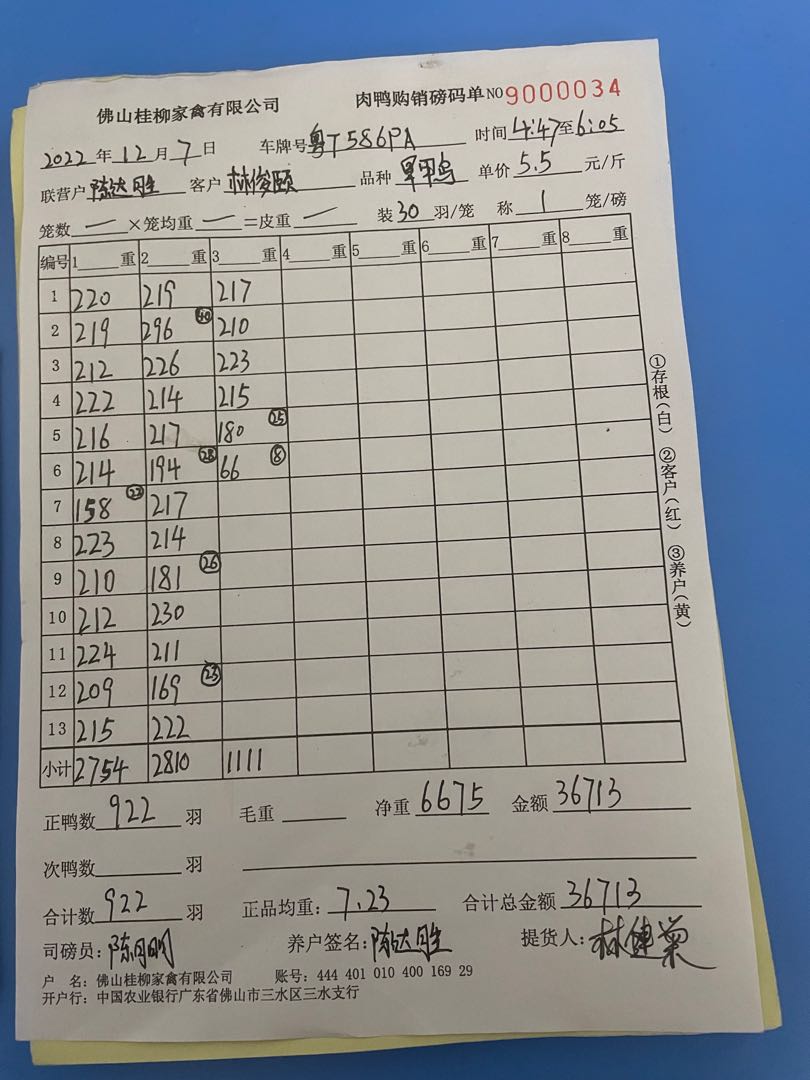 佛山桂柳家禽有限公司 肉鸭购销磅码单 NO 9000034
2022 年 12 月 7 日 车牌号 粤T586PA 时间 4:47 至 6:05
联营户 陈达胜 客户 林俊颐 品种 单价 5.5 元/斤
笼数 一 ×笼均重 一 =皮重 一 装 30 羽/笼 称 1 笼/磅
编号 1 重 2 重 3 重 4 重 5 重 6 重 7 重 8 重
1 220 219 217
2 219 296 40 210
3 212 226 223
4 222 214 215
5 216 217 180 25
6 214 194 28 66 8
7 158 22 217
8 223 214
9 210 181 26
10 212 230
11 224 211
12 209 169 23
13 215 222
小计 2754 2810 1111
正鸭数 922 羽 毛重 净重 6675 金额 36713
次鸭数 羽
合计数 922 羽 正品均重: 7.23 合计总金额 36713
司磅员: 养户签名: 陈达胜 提货人:
户 名: 佛山桂柳家禽有限公司 账号: 444 401 010 400 169 29
开户行: 中国农业银行广东省佛山市三水区三水支行
①存根(白) ②客户(红) ③养户(黄)